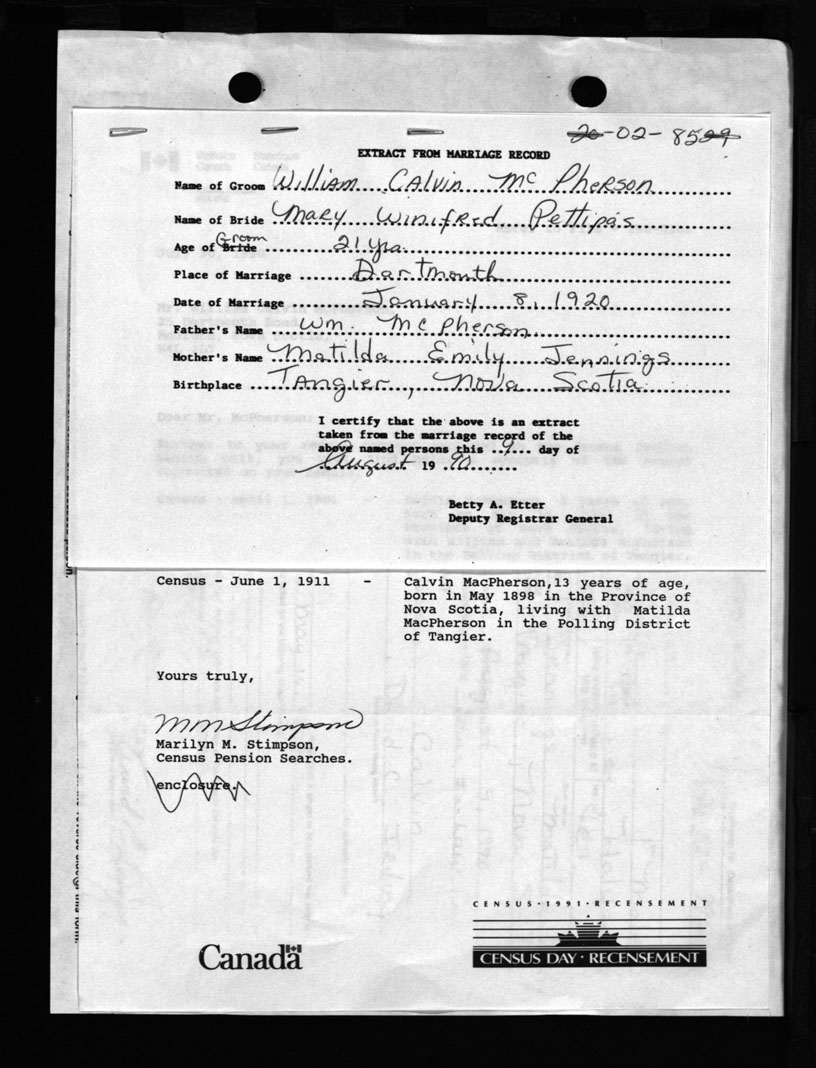 20-02-8529
EXTRACT FROM MARRIAGE RECORD
Name of Groom William Calvin McPherson
Name of Bride Mary Winifred Pettipas
Groom
Age of Bride 21 yrs.
Place of Marriage Dartmouth
Date of Marriage January 8, 1920
Father's Name Wm. McPherson
Mother's Name Matilda Emily Jennings
Birthplace Tangier, Nova Scotia
I certify that the above is an extract
taken from the marriage record of the
above named persons this 9 day of
August 19 90
Betty A. Etter
Deputy Registrar General
Census - June 1, 1911 - Calvin MacPherson,13 years of age,
born in May 1898 in the Province of
Nova Scotia, living with Matilda
MacPherson in the Polling District
of Tangier.
Yours truly,
MM Stimpson
Marilyn M. Stimpson,
Census Pension Searches.
enclosure.
CENSUS · 1991 · RECENSEMENT
Canada
CENSUS DAY · RECENSEMENT